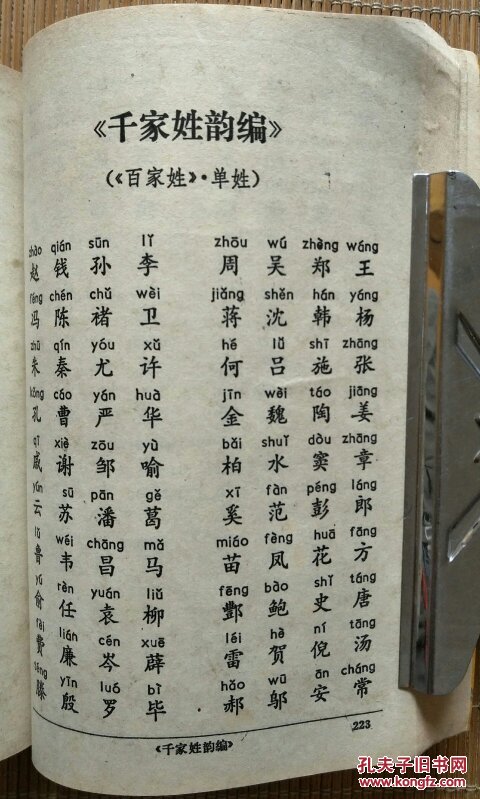 《千家姓韵编》
(《百家姓》·单姓)
zhào qián sūn lǐ zhōu wú zhèng wáng
赵 钱 孙 李 周 吴 郑 王
féng chén chǔ wèi jiǎng shěn hán yáng
冯 陈 褚 卫 蒋 沈 韩 杨
zhū qín yóu xǔ hé lǚ shī zhāng
朱 秦 尤 许 何 吕 施 张
kǒng cáo yán huà jīn wèi táo jiāng
孔 曹 严 华 金 魏 陶 姜
qī xiè zōu yù bǎi shuǐ dòu zhāng
戚 谢 邹 喻 柏 水 窦 章
yún sū pān gě xī fàn péng láng
云 苏 潘 葛 奚 范 彭 郎
lǔ wéi chāng mǎ miáo fèng huā fāng
鲁 韦 昌 马 苗 凤 花 方
yú rèn yuán liǔ fēng bào shǐ táng
俞 任 袁 柳 酆 鲍 史 唐
lián cén xuē léi hè ní tāng
费 廉 岑 薛 雷 贺 倪 汤
téng yīn luó bì hǎo wū ān cháng
滕 殷 罗 毕 郝 邬 安 常
223
《千家姓韵编》
孔夫子旧书网
www.kongfz.com